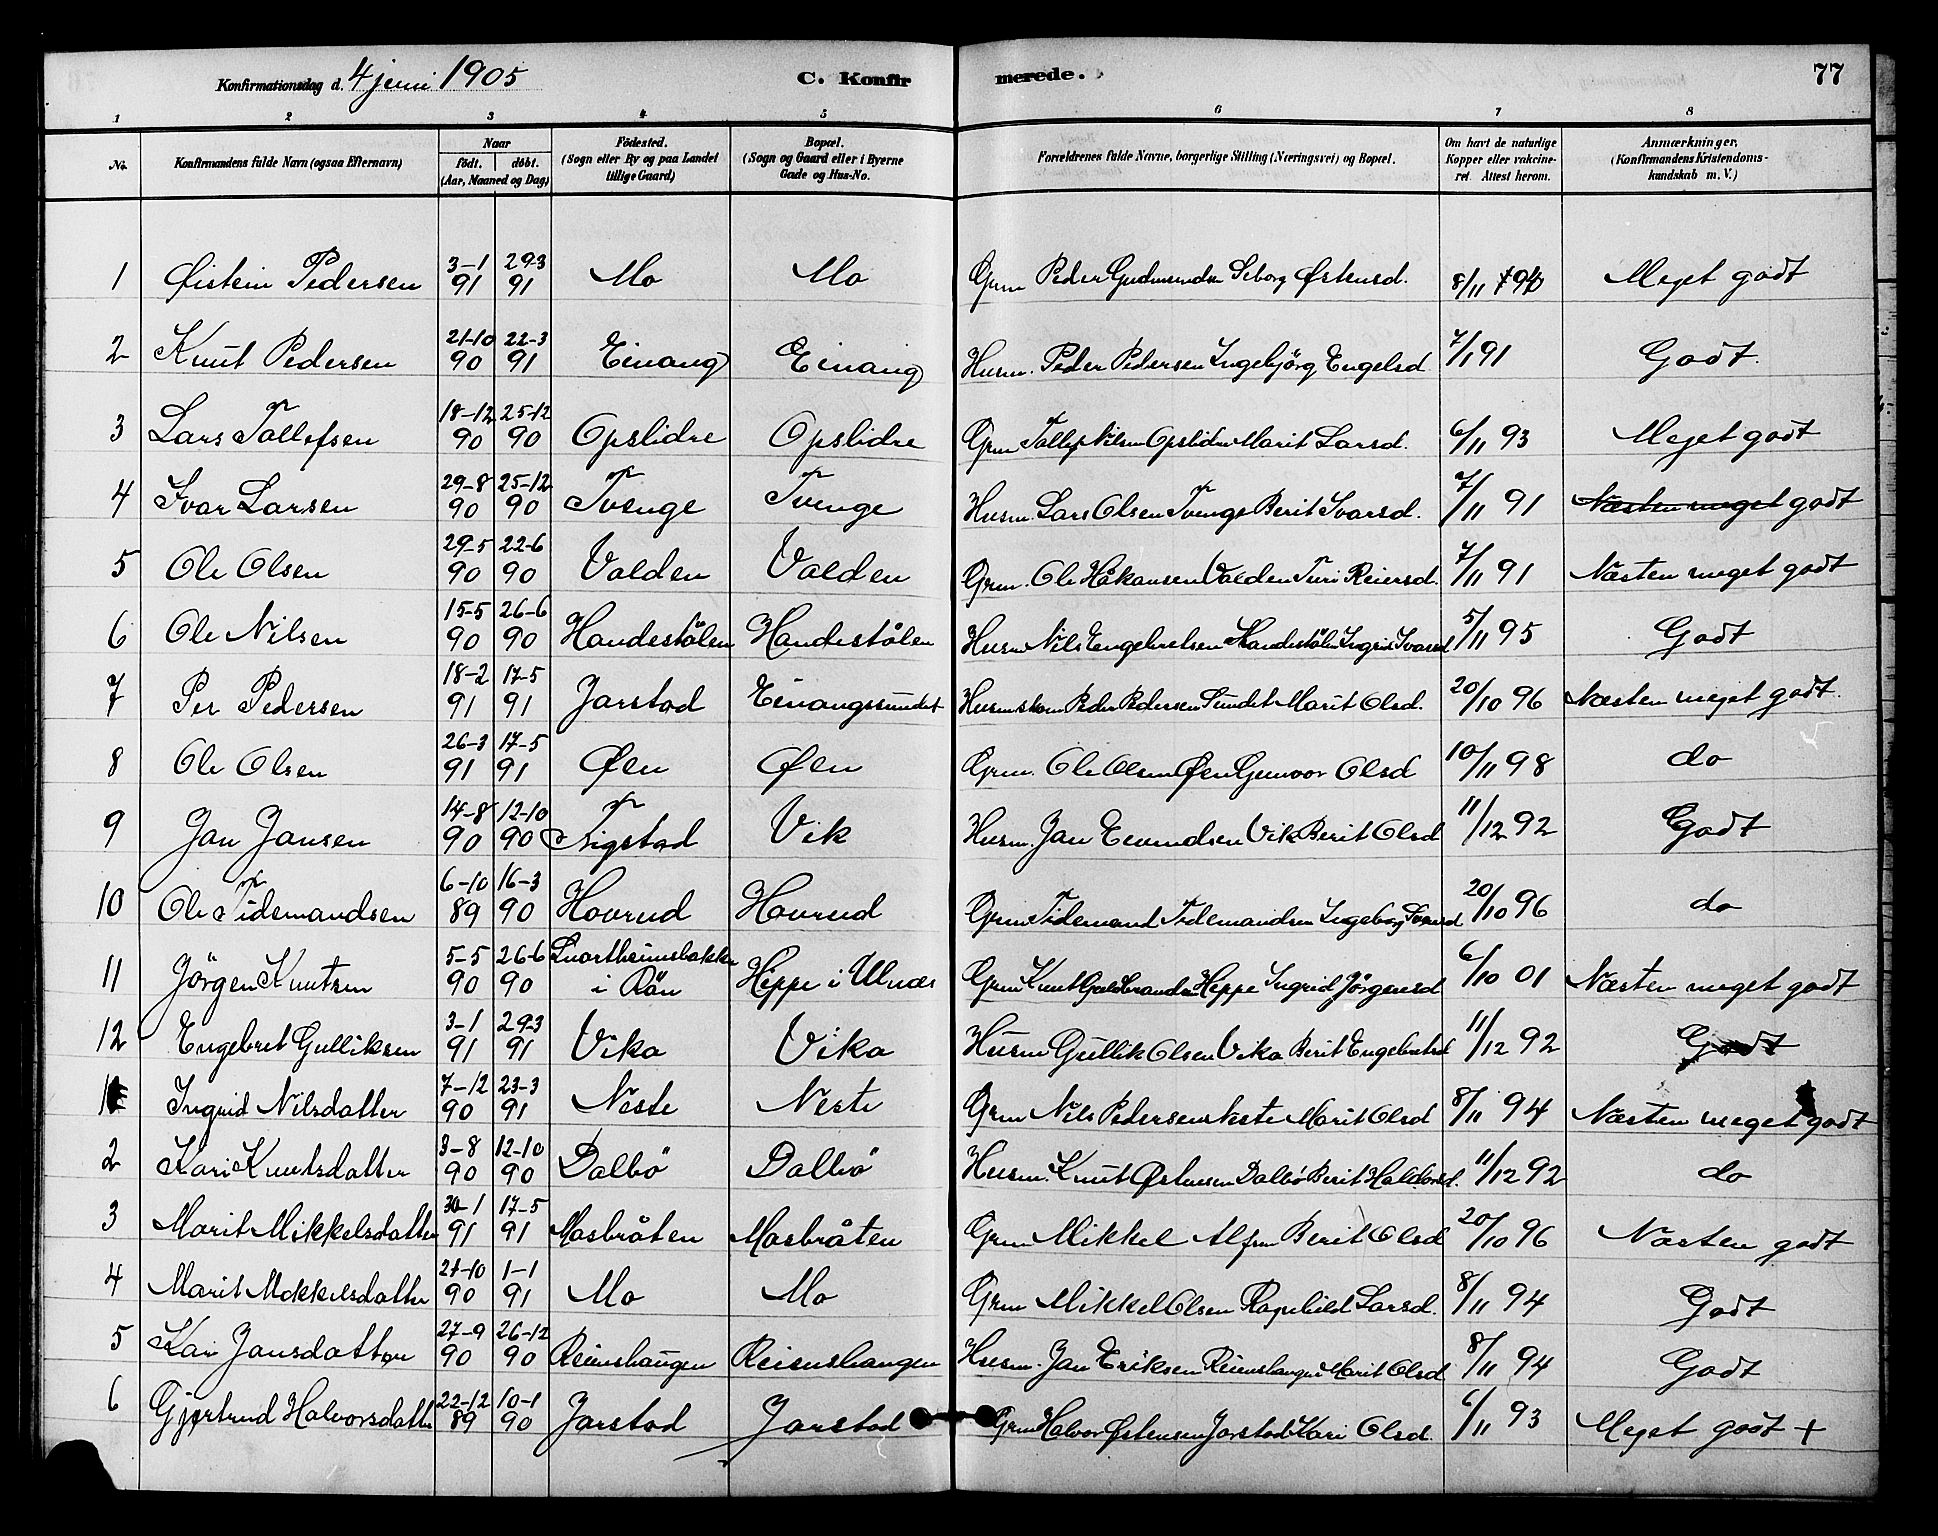 Konfirmationsdag d. 4 juni 1905 C. Konfirmerede. 77
1 2 3 4 5 6 7 8
No. Konfirmandens fulde Navn (ogsaa Efternavn) Naar födt. döbt. (Aar, Maaned og Dag) Födested. (Sogn eller By og paa Landet tillige Gaard) Bopæl. (Sogn og Gaard eller i Byerne Gade og Hus-No. Forældrenes fulde Navne, borgerlige Stilling (Næringsvei) og Bopæl. Om havt de naturlige Kopper eller vakcineret. Attest herom. Anmærkninger, (Konfirmandens Kristendomskundskab m. V.)
1 Øistein Pedersen 3-1 91 29-3 91 Mo Mo Grm Peder Gudmundsn Siborg Østensd. 8/11 94 Meget godt
2 Knut Pedersen 21-10 90 22-3 91 Einang Einang Husm. Peder Pedersen Ingebjörg Engelsd. 7/11 91 Godt.
3 Lars Tollefsen 18-12 90 25-12 90 Opslidre Opslidre Grm Tollef Nilsen Opslidre Marit Larsd. 6/11 93 Meget godt
4 Ivar Larsen 29-8 90 25-12 90 Tvenge Tvenge Husm. Lars Olsen Tvenge Berit Ivarsd. 7/11 91 Næsten meget godt
5 Ole Olsen 29-5 90 22-6 90 Valden Valden Grm. Ole Håkansen Valden Turi Reiersd. 7/11 91 Næsten meget godt
6 Ole Nilsen 15-5 90 26-6 90 Handestölen Handestölen Husm Nils Engebretsen Handestölen Ingrid Ivarsd 5/11 95 Godt
7 Per Pedersen 18-2 91 17-5 91 Jarstad Einangssundet Husmskom Peder Pedersen Sundet Marit Olsd. 20/10 96 Næsten meget godt.
8 Ole Olsen 26-3 91 17-5 91 Øen Øen Grm. Ole Olsen Øen Gunvor Olsd 10/11 98 do
9 Jan Jansen 14-8 90 12-10 90 Tigstad Vik Husm. Jan Evendsen Vik Berit Olsd 11/12 92 Godt
10 Ole Tidemandsen 6-10 89 16-3 90 Hovrud Hovrud Grm Tidemand Tidemandsn Ingeborg Ivarsd 20/10 96 do
11 Jörgen Knutsen 5-5 90 26-6 90 Svartheimsbakke i Rön Heppe i Ulnæs Grm Knut Guldbrandsn Heppe Ingrid Jörgensd 6/10 01 Næsten meget godt
12 Engebret Gulliksen 3-1 91 29-3 91 Vika Vika Husm Gullik Olsen Vika Berit Engebretsd 11/12 92 Godt
1 Ingrid Nilsdatter 7-12 90 23-3 91 Neste Neste Grm Nils Pedersen Neste Marit Olsd 8/11 94 Næsten meget godt
2 Kari Knutsdatter 3-8 90 12-10 90 Dalbö Dalbö Husm. Knut Østensen Dalbö Berit Haldorsd. 11/12 92 do
3 Marit Mikkelsdatter 30-1 91 17-5 91 Mosbråten Mosbråten Grm Mikkel Alfsn Berit Olsd 20/10 96 Næsten godt
4 Marit Mekkelsdatter 21-10 90 1-1 91 Mo Mo Grm Mikkel Olsen Ragnhild Larsd. 8/11 94 Godt
5 Kari Jansdatter 27-9 90 26-12 90 Reienshaugen Reienshaugen Husm. Jan Eriksen Reienshaugen Marit Olsd 8/11 94 Godt
6 Gjertrud Halvorsdatter 22-12 89 10-1 90 Jarstad Jarstad Grm Halvor Østensen Jarstad Kari Olsd. 6/11 93 Meget godt +